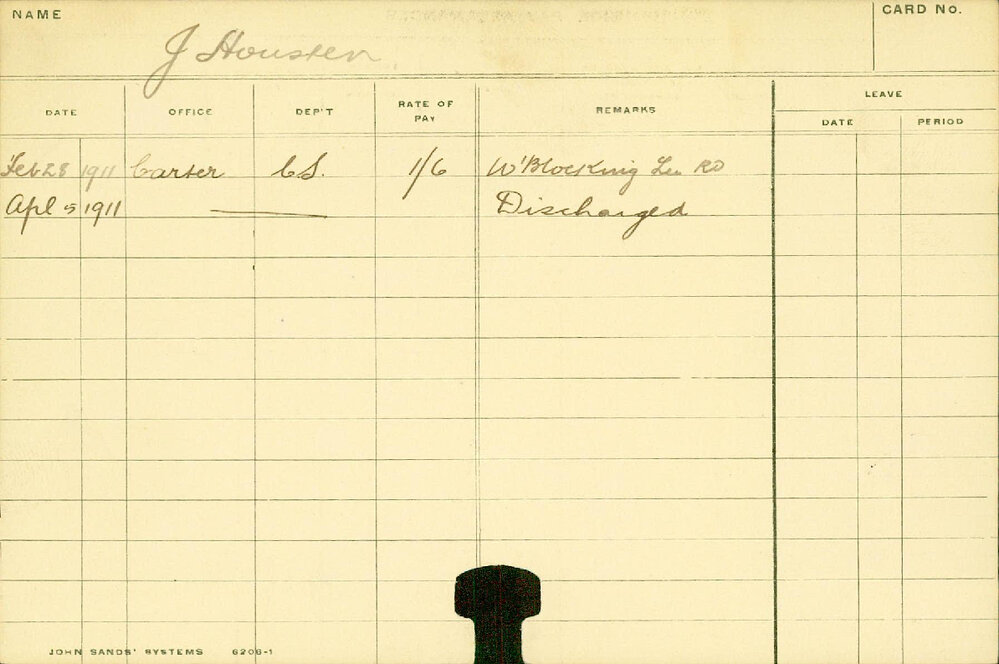 NAME
CARD No.
J Housten
DATE OFFICE DEP'T RATE OF PAY REMARKS LEAVE
DATE PERIOD
Feb 28 1911 Carter C.S. 1/6 W'Blocking Rd
Apl 5 1911 Discharged
JOHN SANDS' SYSTEMS 6206-1